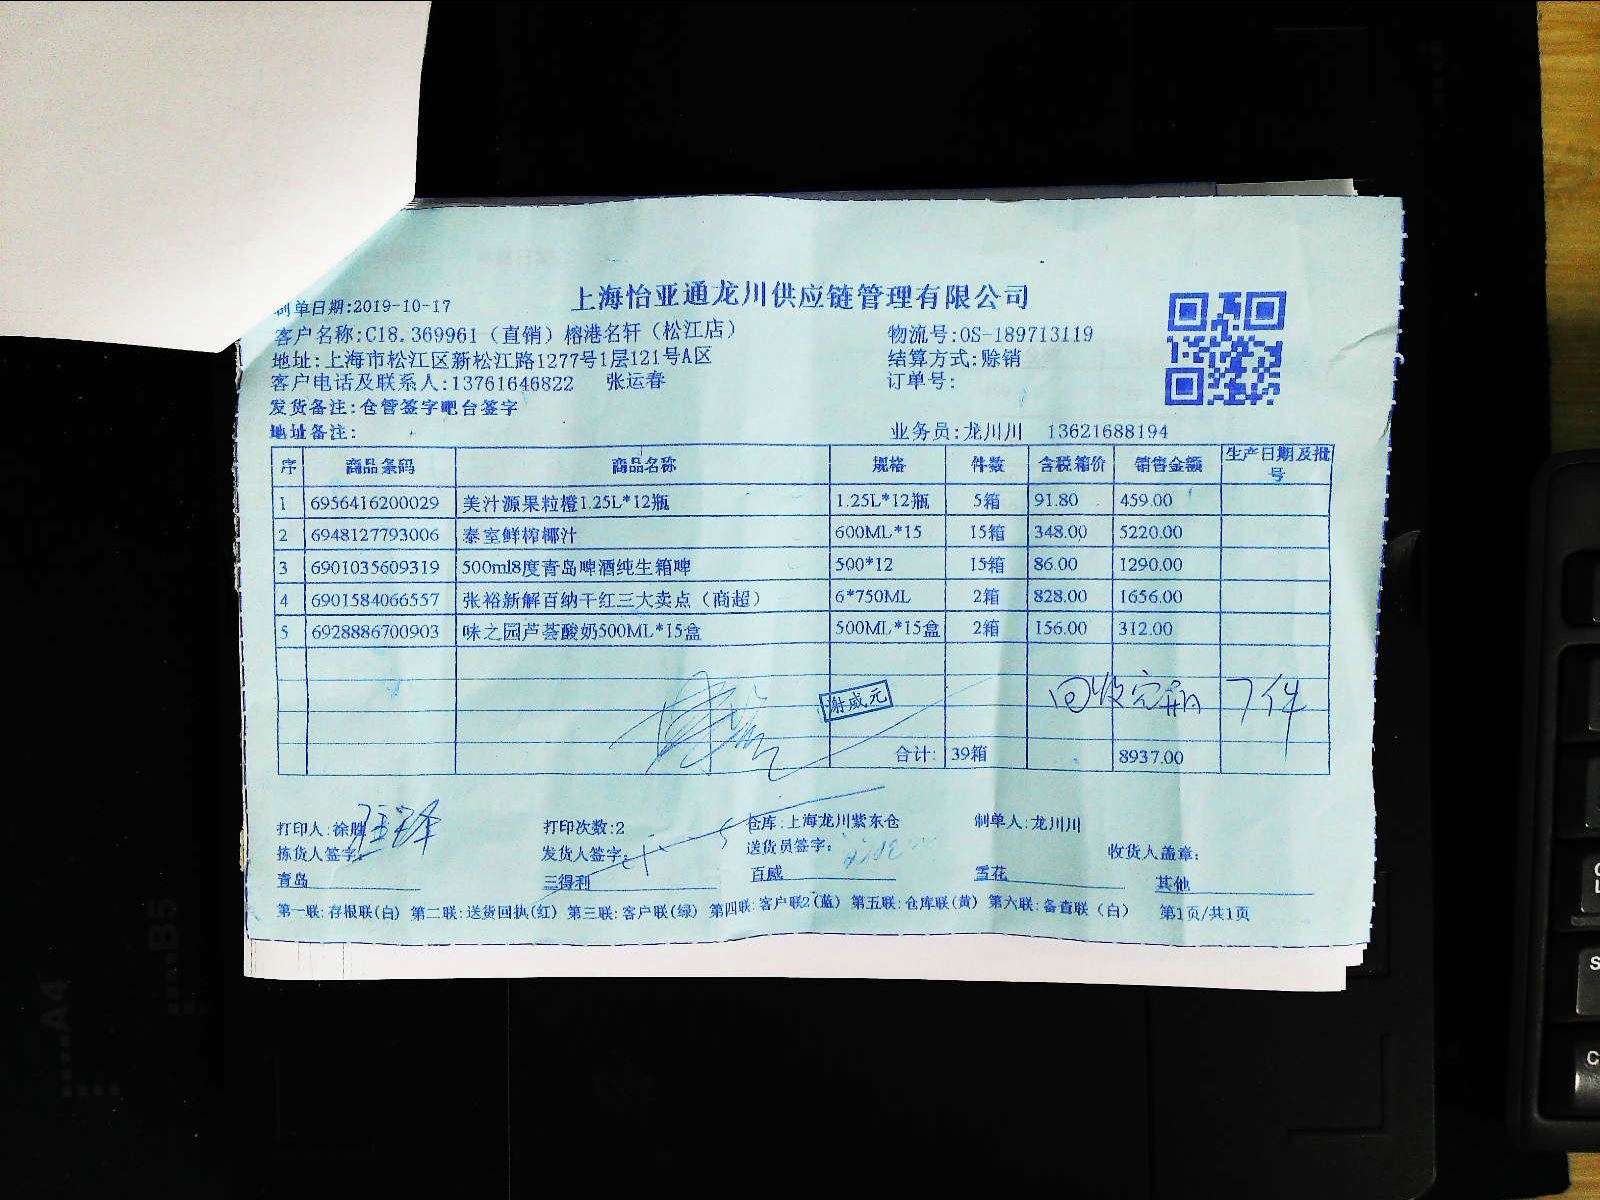 上海怡亚通龙川供应链管理有限公司
制单日期:2019-10-17
客户名称:C18.369961（直销）榕港名轩（松江店） 物流号:OS-189713119
地址:上海市松江区新松江路1277号1层121号A区 结算方式:赊销
客户电话及联系人:13761646822 张运春 订单号:
发货备注:仓管签字吧台签字
地址备注: 业务员:龙川川 13621688194
序 商品条码 商品名称 规格 件数 含税箱价 销售金额 生产日期及批号
1 6956416200029 美汁源果粒橙1.25L*12瓶 1.25L*12瓶 5箱 91.80 459.00
2 6948127793006 泰室鲜榨椰汁 600ML*15 15箱 348.00 5220.00
3 6901035609319 500ml8度青岛啤酒纯生箱啤 500*12 15箱 86.00 1290.00
4 6901584066557 张裕新解百纳干红三大卖点（商超） 6*750ML 2箱 828.00 1656.00
5 6928886700903 味之园芦荟酸奶500ML*15盒 500ML*15盒 2箱 156.00 312.00
谢威元 回收空瓶 7件
合计: 39箱 8937.00
打印人:徐 打印次数:2 仓库:上海龙川紫东仓 制单人:龙川川
拣货人签字: 发货人签字: 送货员签字: 收货人盖章:
青岛 三得利 百威 雪花 其他
第一联:存根联(白) 第二联:送货回执(红) 第三联:客户联(绿) 第四联:客户联2(蓝) 第五联:仓库联(黄) 第六联:备查联（白） 第1页/共1页
A4
B5